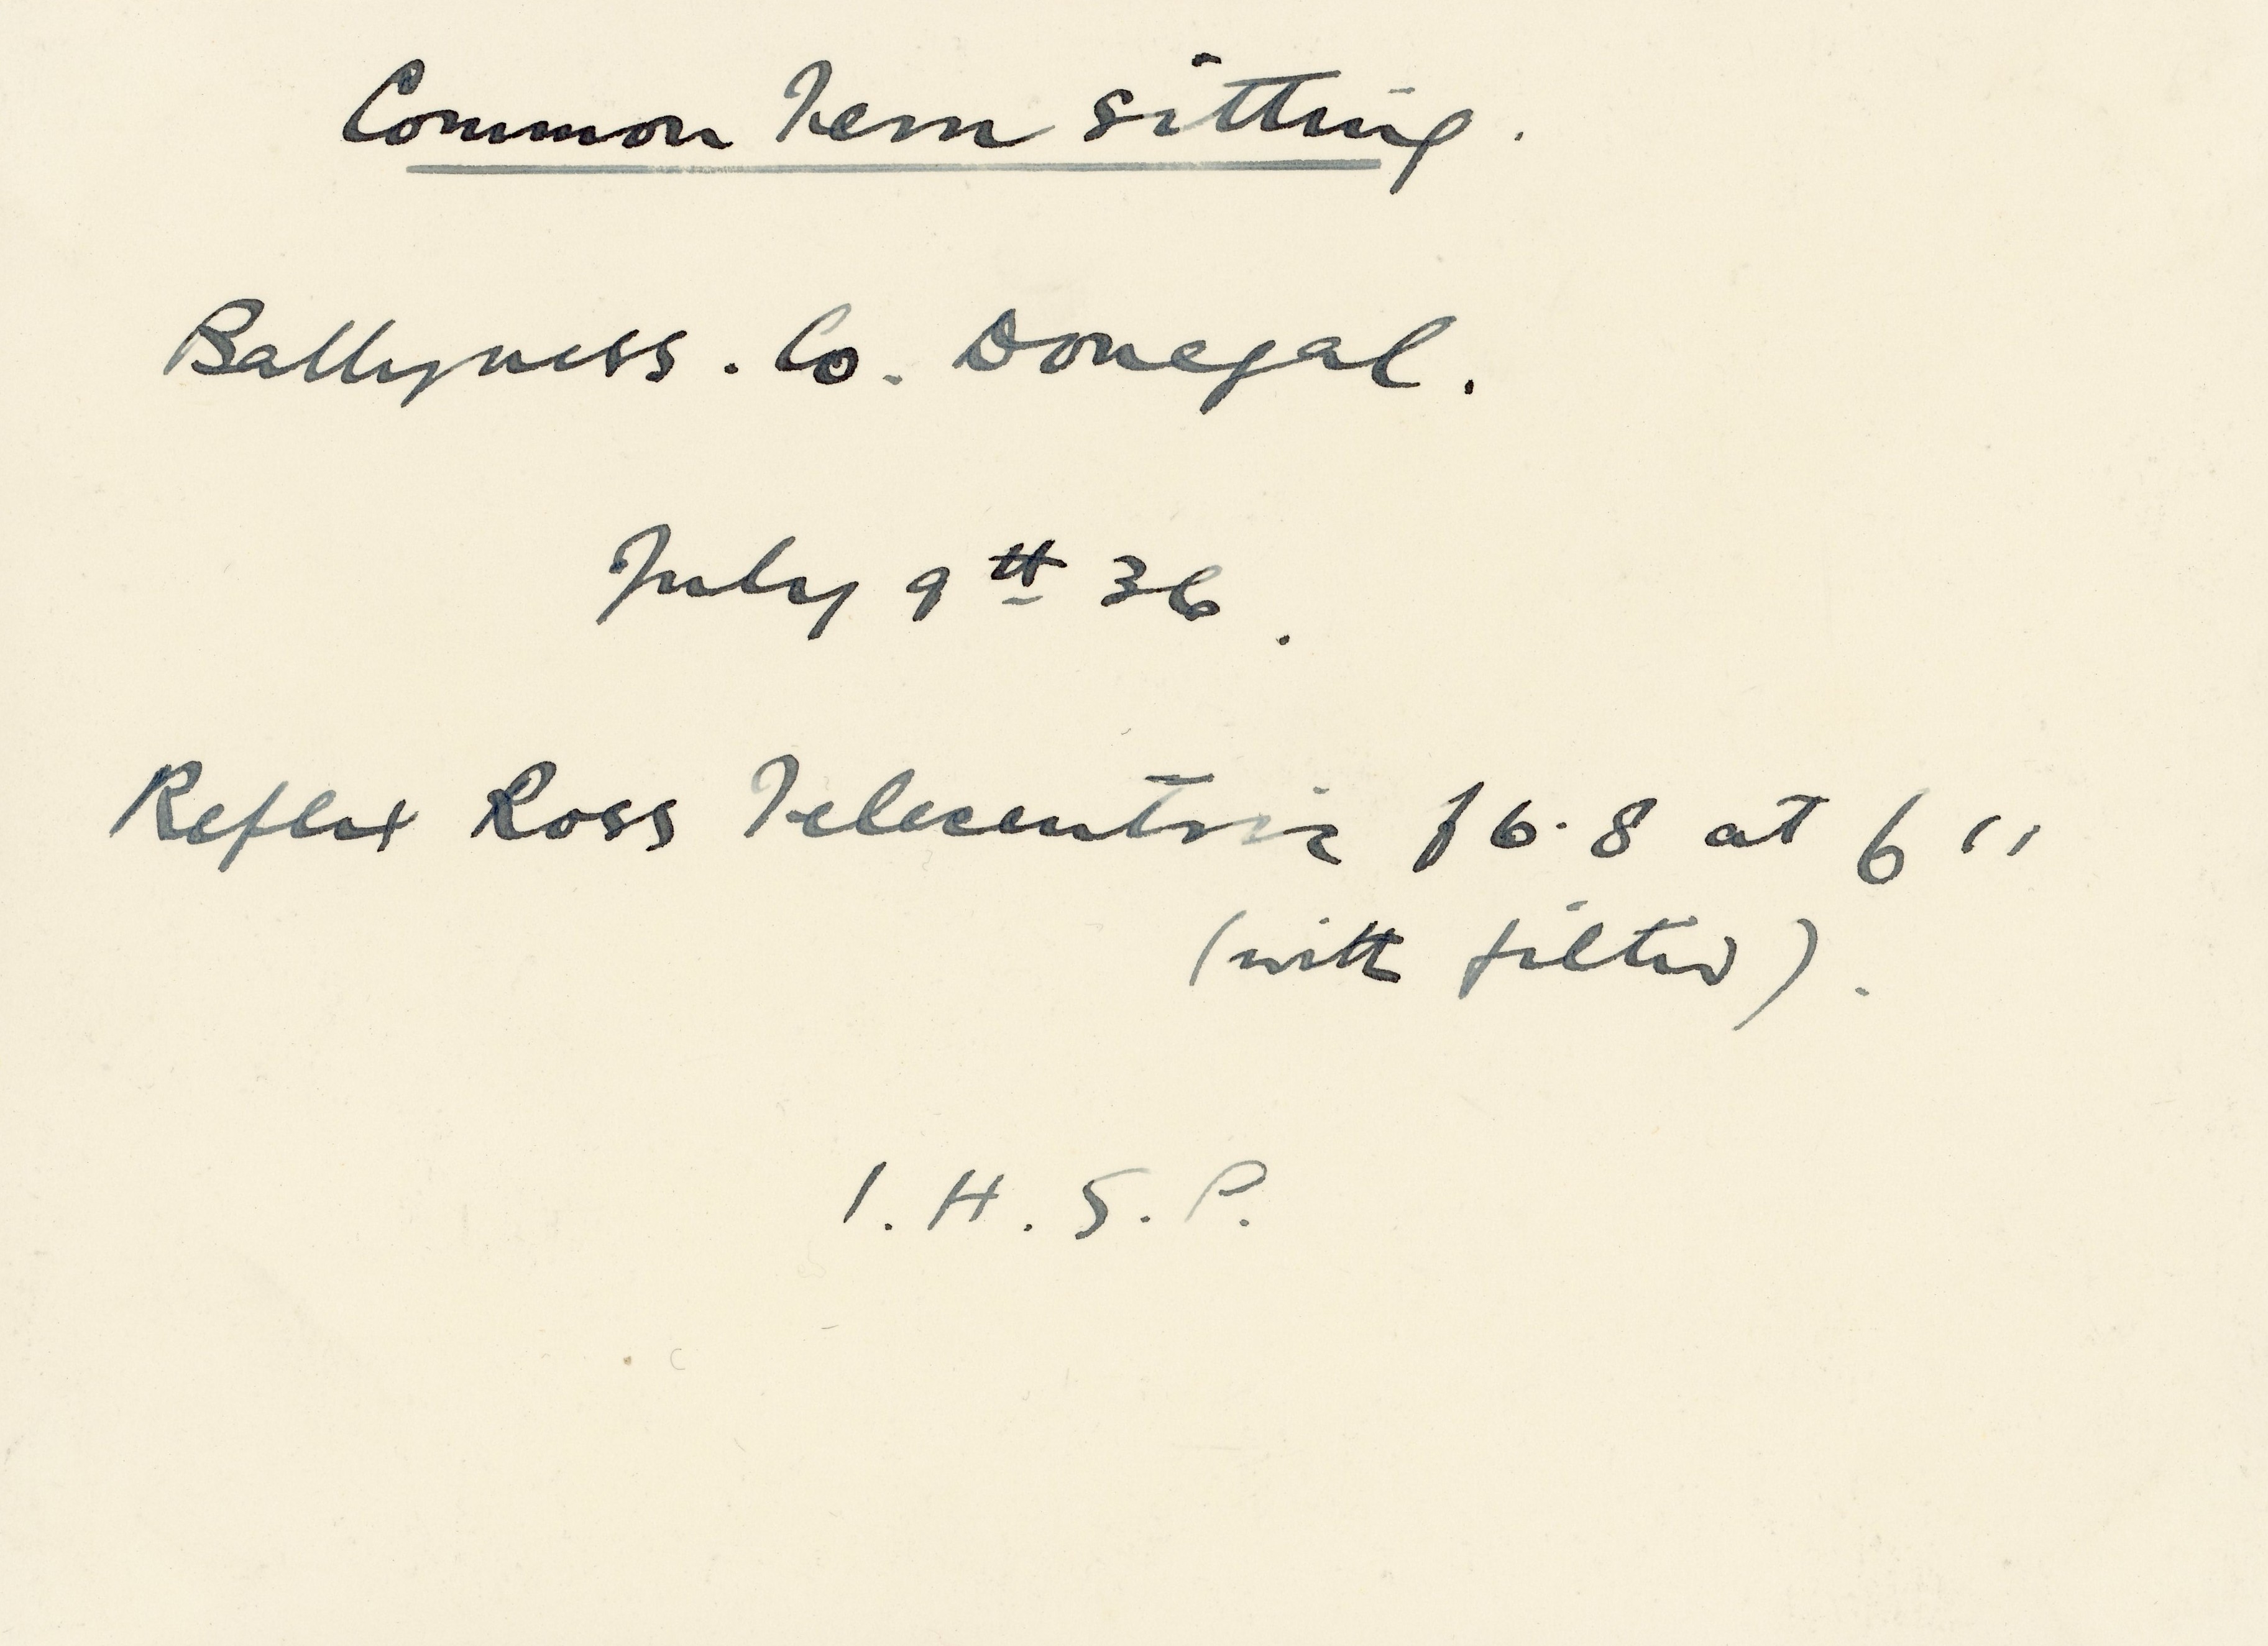 Common Tern sitting.
Ballyness. Co. Donegal.
July 9th 36.
Reflex Ross Telecentric f6.8 at 6"
(with filter).
I.H.S.P.